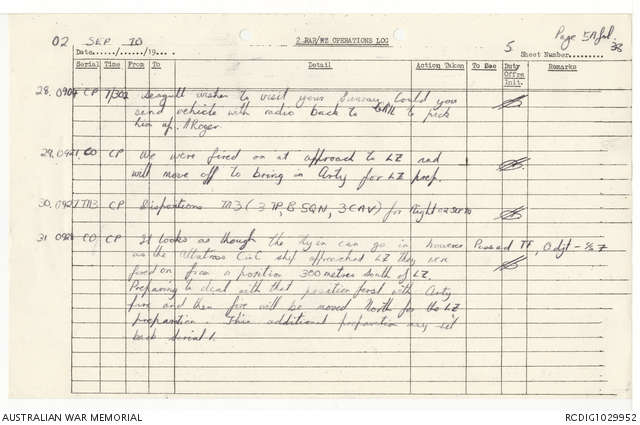 02 SEP 70 2 RAR/NZ OPERATIONS LOG Page 5 of 38
Date....../....../19... 5 Sheet Number.........
Serial Time From To Detail Action Taken To Sec Duty Offrs Init. Remarks
28. 0904 CP T/302 Seagull wishes to visit your Sunray. Could you
send vehicle with radio back to to pick
him up. A Roger.
29. CO CP We were fired on at approach to LZ and
will move off to bring in Arty for LZ prep.
30. 0927 TM3 CP Dispositions TM3 (3 TP, B SQN, 3 CAV) for Night 02 Sep 70
31 0928 CO CP It looks as though the can go in however Passed TF, Adjt
as the Albatross ship approached LZ they were
fired on from a position 300 metres South of LZ.
Preparing to deal with that position first with Arty
fire and then fire will be moved North for the LZ
preparation. This additional preparation may set
back serial 1.
AUSTRALIAN WAR MEMORIAL RCDIG1029952